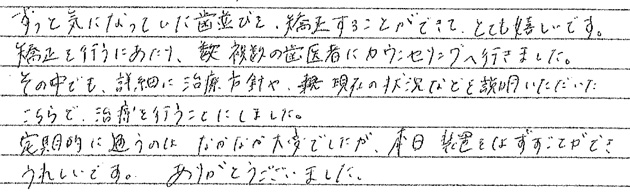 ずっと気になっていた歯並びを、矯正することができて、とても嬉しいです。
矯正を行うにあたり、複数の歯医者にカウンセリングへ行きました。
その中でも、詳細に治療方針や、現在の状況などを説明いただいた
こちらで、治療を行うことにしました。
定期的に通うのは なかなか大変でしたが、本日 装置をはずすことができ
うれしいです。 ありがとうございました。